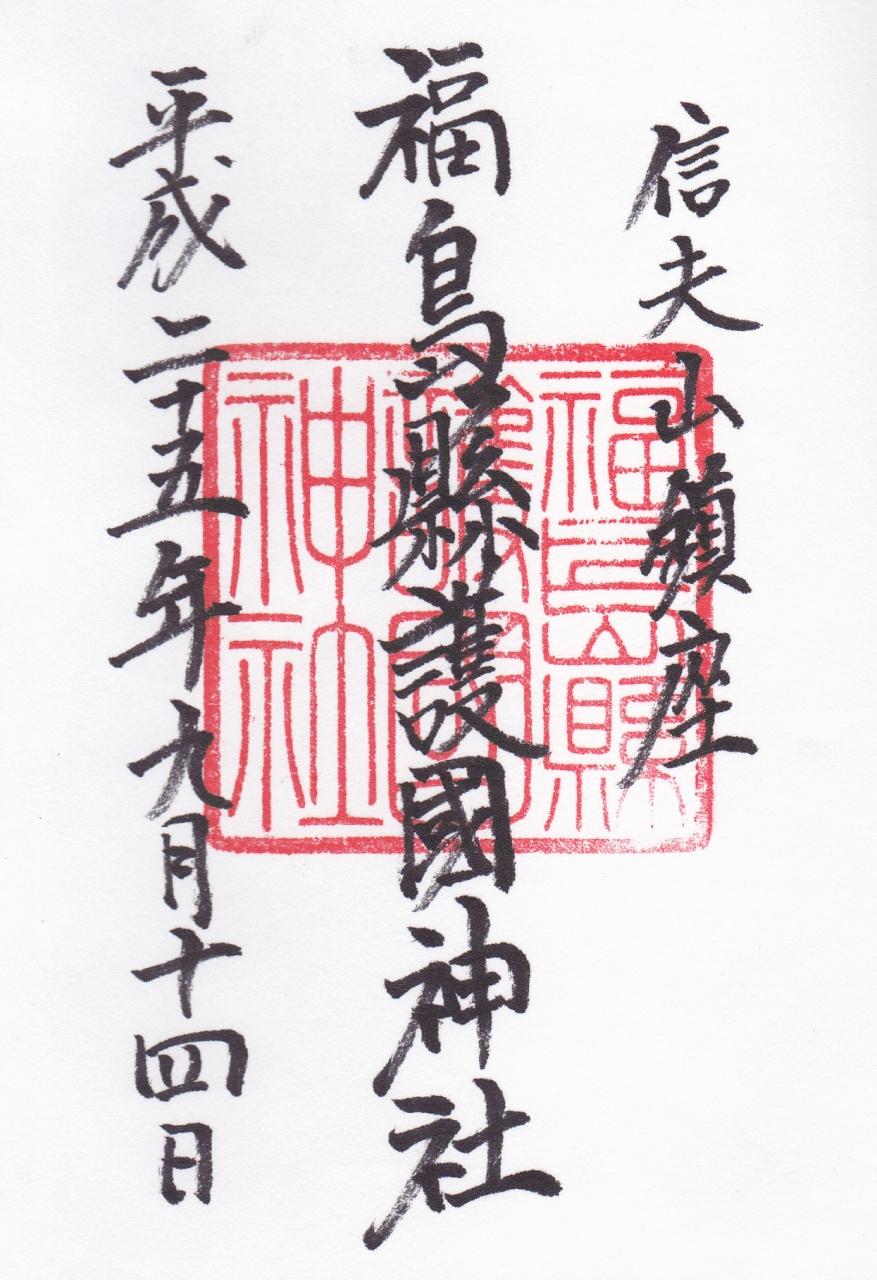 信夫山鎮座
福島縣護國神社
平成二十五年九月十四日
福島縣
護國
神社